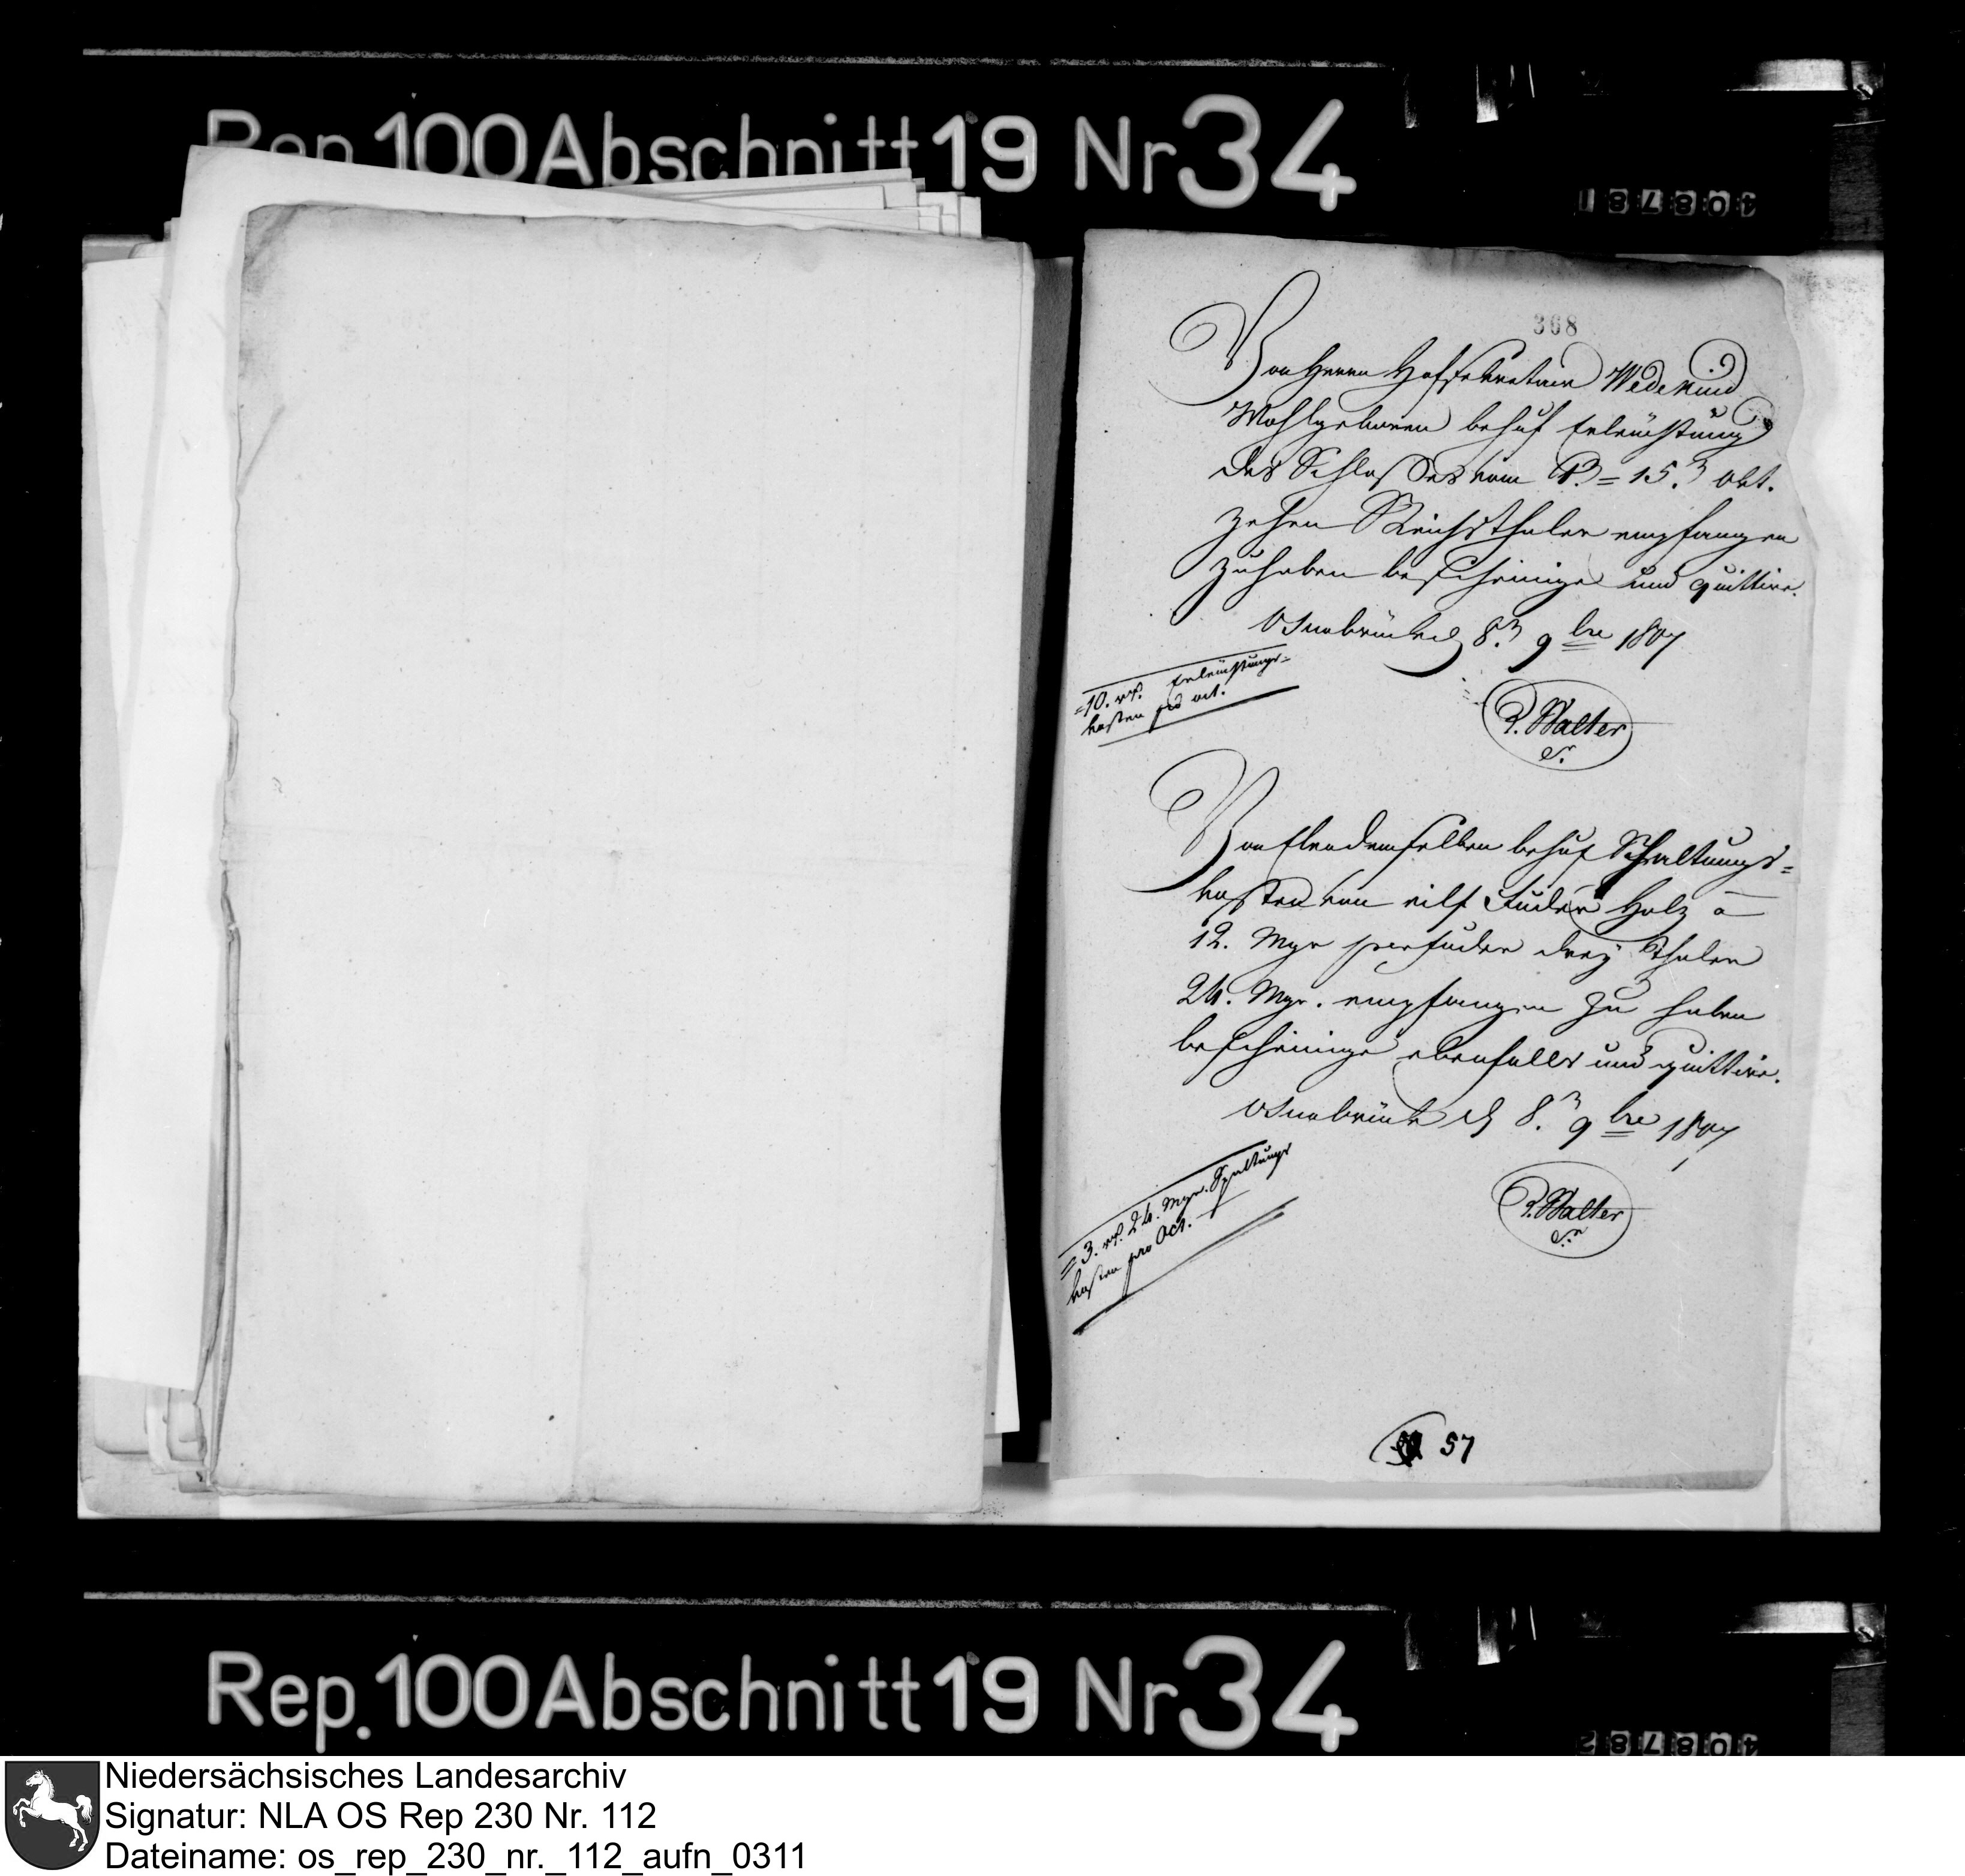 Rep. 100 Abschnitt 19 Nr 34
368
Von Herrn Hofsekretair Wedekind
Wohlgeboren behuf Erleuchtung
des Schlosses vom = 15. Oct.
zehen Reichsthaler empfangen
zu haben bescheinige und quittire.
Osnabrück d 8. 9bre 1807
= 10. rt. Erleuchtungs-
kosten pro oct.
P. Walter
Von Ebendemselben behuf Spaltungs=
kosten von eilf Fuder Holz a
12. Mgr per fuder drey Thaler
24. Mgr. empfangen zu haben
bescheinige ebenfalls und quittire.
Osnabrück d 8. 9bre 1807
= 3. rt. 24. Mgr. Spaltungs
kosten pro Oct.
P. Walter
57
Rep. 100 Abschnitt 19 Nr 34
Niedersächsisches Landesarchiv
Signatur: NLA OS Rep 230 Nr. 112
Dateiname: os_rep_230_nr._112_aufn_0311